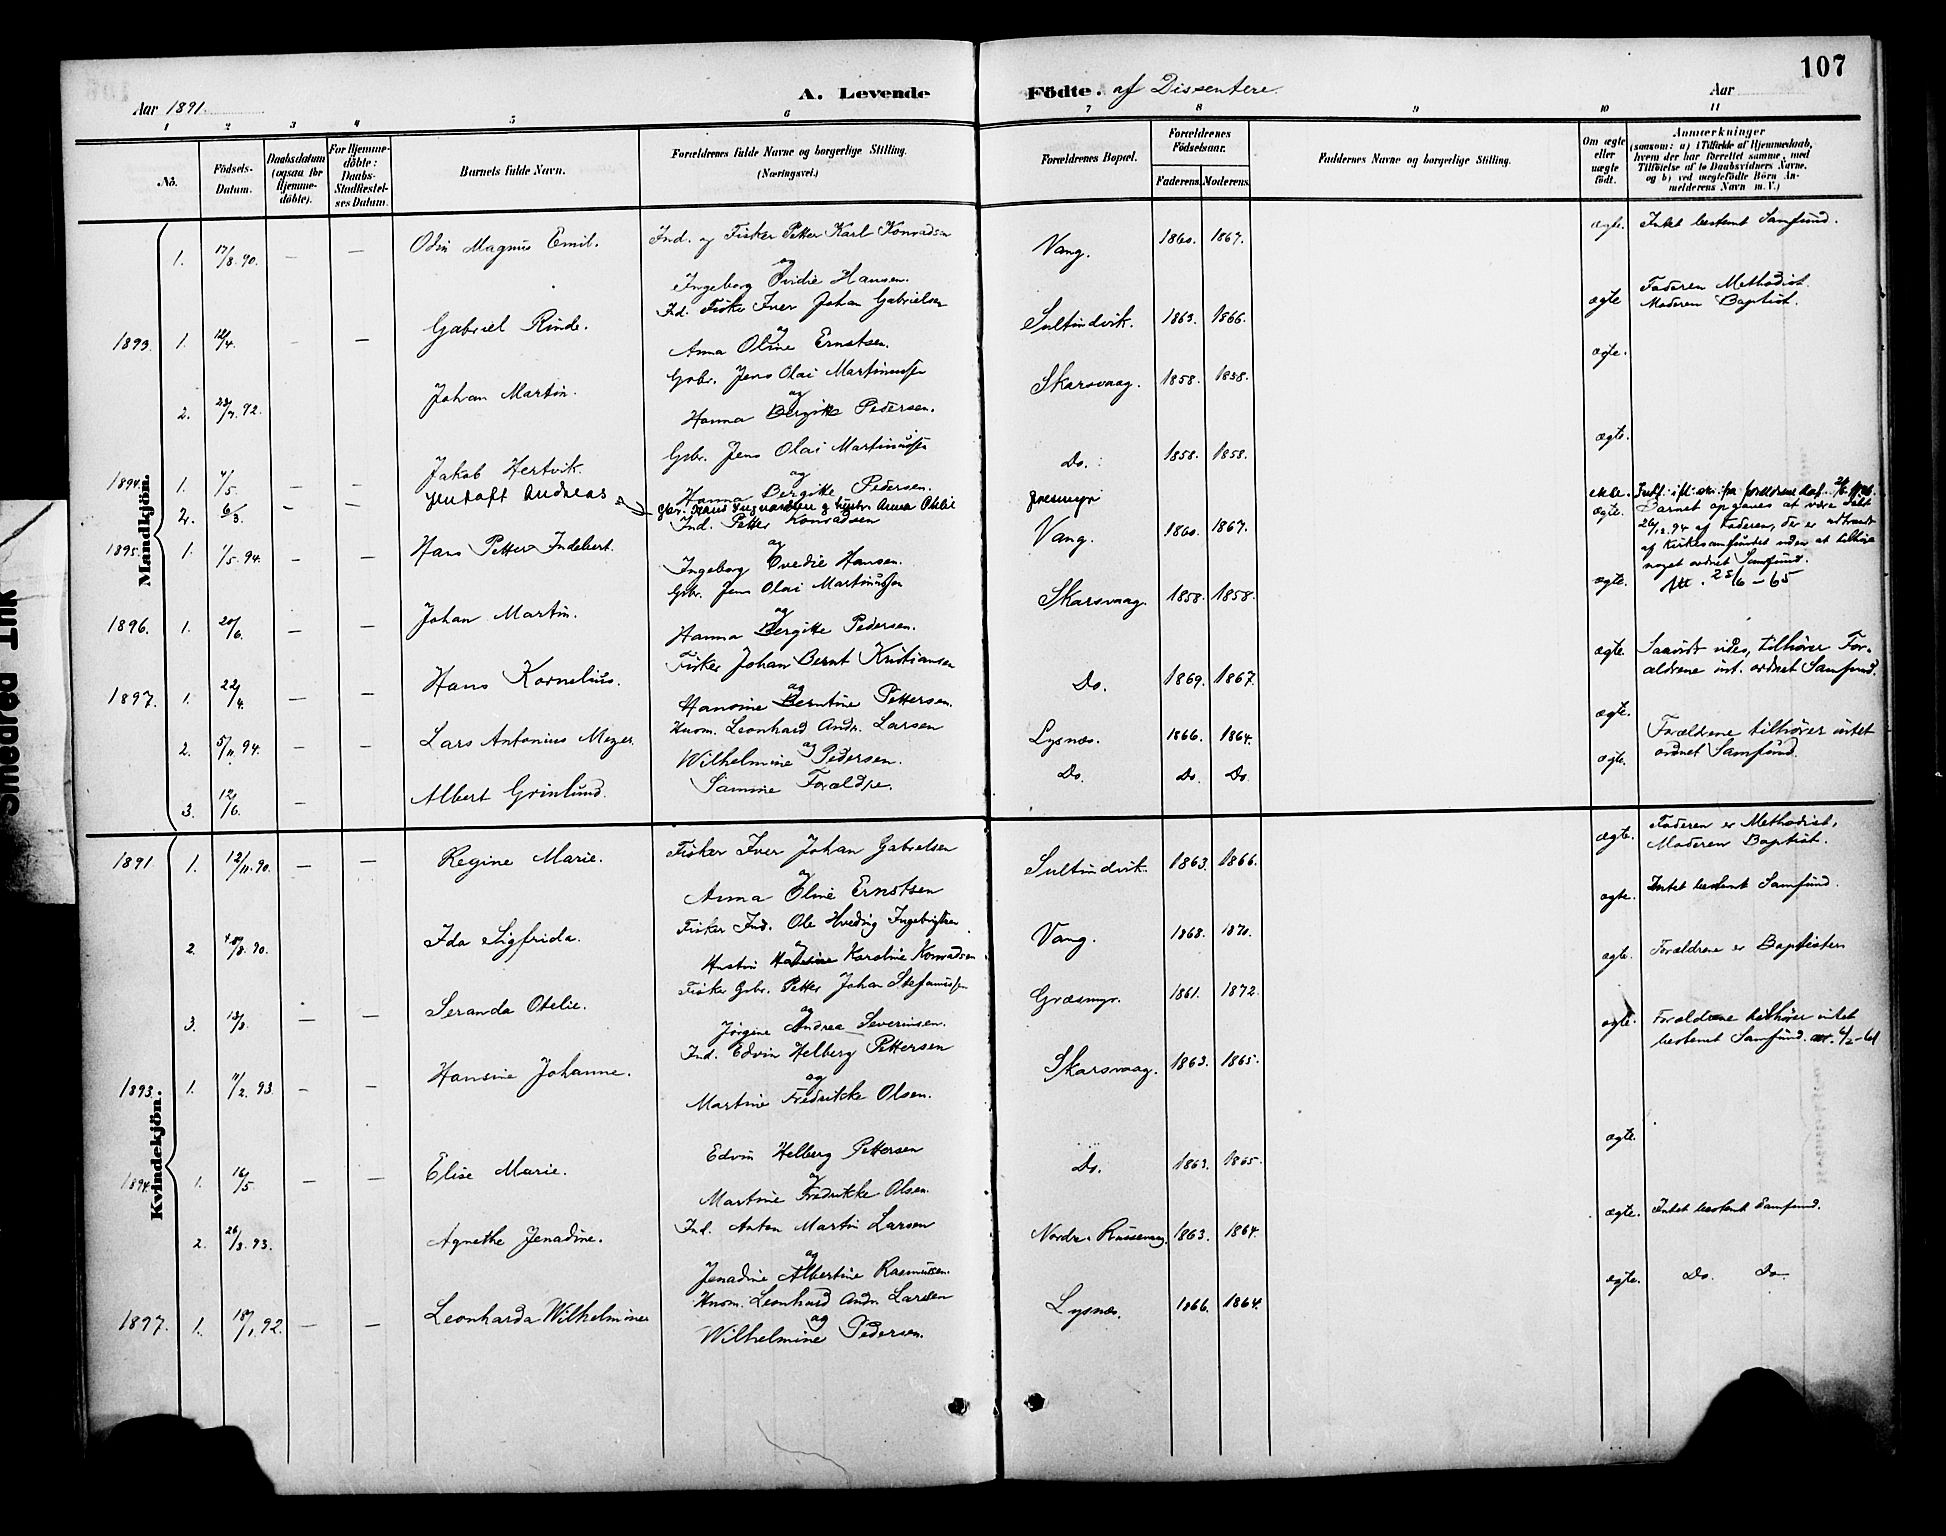 107
Aar 1891. A. Levende Födte. af Dissentere. Aar
1 2 3 4 5 6 7 8 9 10 11
No. Födsels-Datum. Daabsdatum (ogsaa for Hjemmedöbte). For Hjemmedöbte: Daabs-Stadfæstelses Datum. Barnets fulde Navn. Forældrenes fulde Navne og borgerlige Stilling. (Næringsvei.) Forældrenes Bopæl. Forældrenes Födselsaar. Faderens. Moderens. Faddernes Navne og borgerlige Stilling. Om ægte eller uægte födt. Anmærkninger (saasom: a) i Tilfælde af Hjemmedaab, hvem der har forrettet samme, med Tilföielse af to Daabsvidners Navne. og b) ved uægtefödte Börn Anmelderens Navn m. V.)
Mandkjön.
1. 17/8.90. — — Odin Magnus Emil. Ind. og Fisker Petter Karl Konradsen Vang. 1860. 1867. ægte. Intet bestemt Samfund.
og
Ingeborg Ovidie Hansen.
1893. 1. 12/4. — — Gabriel Rinde. Ind. Fisker Iver Johan Gabrielsen Sultindvik. 1863. 1866. ægte Faderen Methodist. Moderen Baptist.
og
Anna Oline Ernstsen.
2. 23/7.92. Johan Martin. Gbr. Jens Olai Martinussen Skarsvaag. 1858. 1858. ægte.
og
Hanna Bergitte Pedersen.
1894. 1. 4/5. — — Jakob Hertvik. Gbr. Jens Olai Martinussen Do. 1858. 1858. ægte.
og
Hanna Bergitte Pedersen.
2. 6/3. — — Jentoft Andreas Gbr. Hans Ingvardsen g hustru Anna Otelie Græsmyr ekte.
1895. 1. 1/5.94. — — Hans Petter Indebert. Ind. Petter Konradsen Vang. 1860. 1867. ægte. Barnet opgives at være døbt
og 26/12.94 af Faderen, der er udtraadt
Ingeborg Ovedie Hansen. af Kirkesamfundet uden at tilhøre
noget ordnet Samfund.
Att. 25/6-65
1896. 1. 20/6. — — Johan Martin. Gbr. Jens Olai Martinussen Skarsvaag. 1858. 1858. ægte.
og
Hanna Bergitte Pedersen.
1897. 1. 22/4. — — Hans Kornelius. Fisker Johan Bernt Kristiansen Do. 1869. 1867. ægte. Saavidt vides, tilhører For-
og ældrene int. ordnet Samfund.
Hansine Berntine Pettersen.
2. 5/11.94. — — Lars Antonius Meyer. Husm. Leonhard Andr. Larsen Lysnæs. 1866. 1864. ægte. Forældrene tilhører intet
og ordnet Samfund.
Wilhelmine Pedersen.
3. 12/6. — Albert Grinlund. Samme Forældre. Do. Do. Do. ægte.
Kvindekjön.
1891 1. 12/11.90. — — Regine Marie. Fisker Iver Johan Gabrielsen Sultindvik. 1863. 1866. ægte. Faderen er Methodist,
og Moderen Baptist.
Anna Oline Ernstsen
2. /8.90. Ida Sigfrida. Fisker Ind. Ole Hveding Ingebrigtsen Vang. 1868. 1870. ægte. Intet bestemt Samfund.
Hustru Karoline Konradsen.
3. 13/8. — — Seranda Otelie. Fisker Gbr. Petter Johan Stefanussen Græsmyr. 1861. 1872. ægte. Forældrene er Baptister
og
Jørgine Andrea Severinsen.
1893. 1. 11/2.93. — — Hansine Johanne. Ind. Edvin Helberg Pettersen Skarsvaag. 1863. 1865. ægte. Forældrene tilhører intet
og bestemt Samfund.
Martine Fredrikke Olsen.
1894. 1. 16/5. — — Elise Marie. Edvin Helberg Pettersen Do. 1863. 1865. ægte.
og
Martine Fredrikke Olsen.
2. 26/3.93. Agnethe Jenadine. Ind. Anton Martin Larsen Nordre Russevaag. 1863. 1864. ægte. Intet bestemt Samfund.
og
Jenadine Albertine Rasmussen.
1897. 1. 18/1.92. — — Leonharda Wilhelmine Husm. Leonhard Andr. Larsen Lysnæs. 1866. 1864. ægte. Do. Do.
og
Wilhelmine Pedersen.